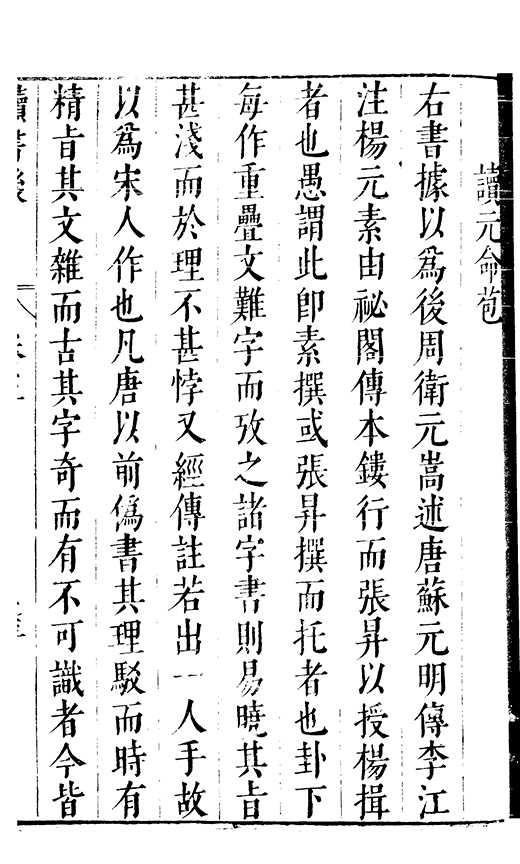 讀元命苞
右書據以爲後周衛元嵩述唐蘇元明傳李江
注楊元素由祕閣傳本鏤行而張昇以授楊揖
者也愚謂此卽素撰或張昇撰而托者也卦下
每作重疊文難字而攷之諸字書則易曉其旨
甚淺而於理不甚悖又經傳註若出一人手故
以爲宋人作也凡唐以前僞書其理駁而時有
精旨其文雜而古其字奇而有不可識者今皆
讀書後